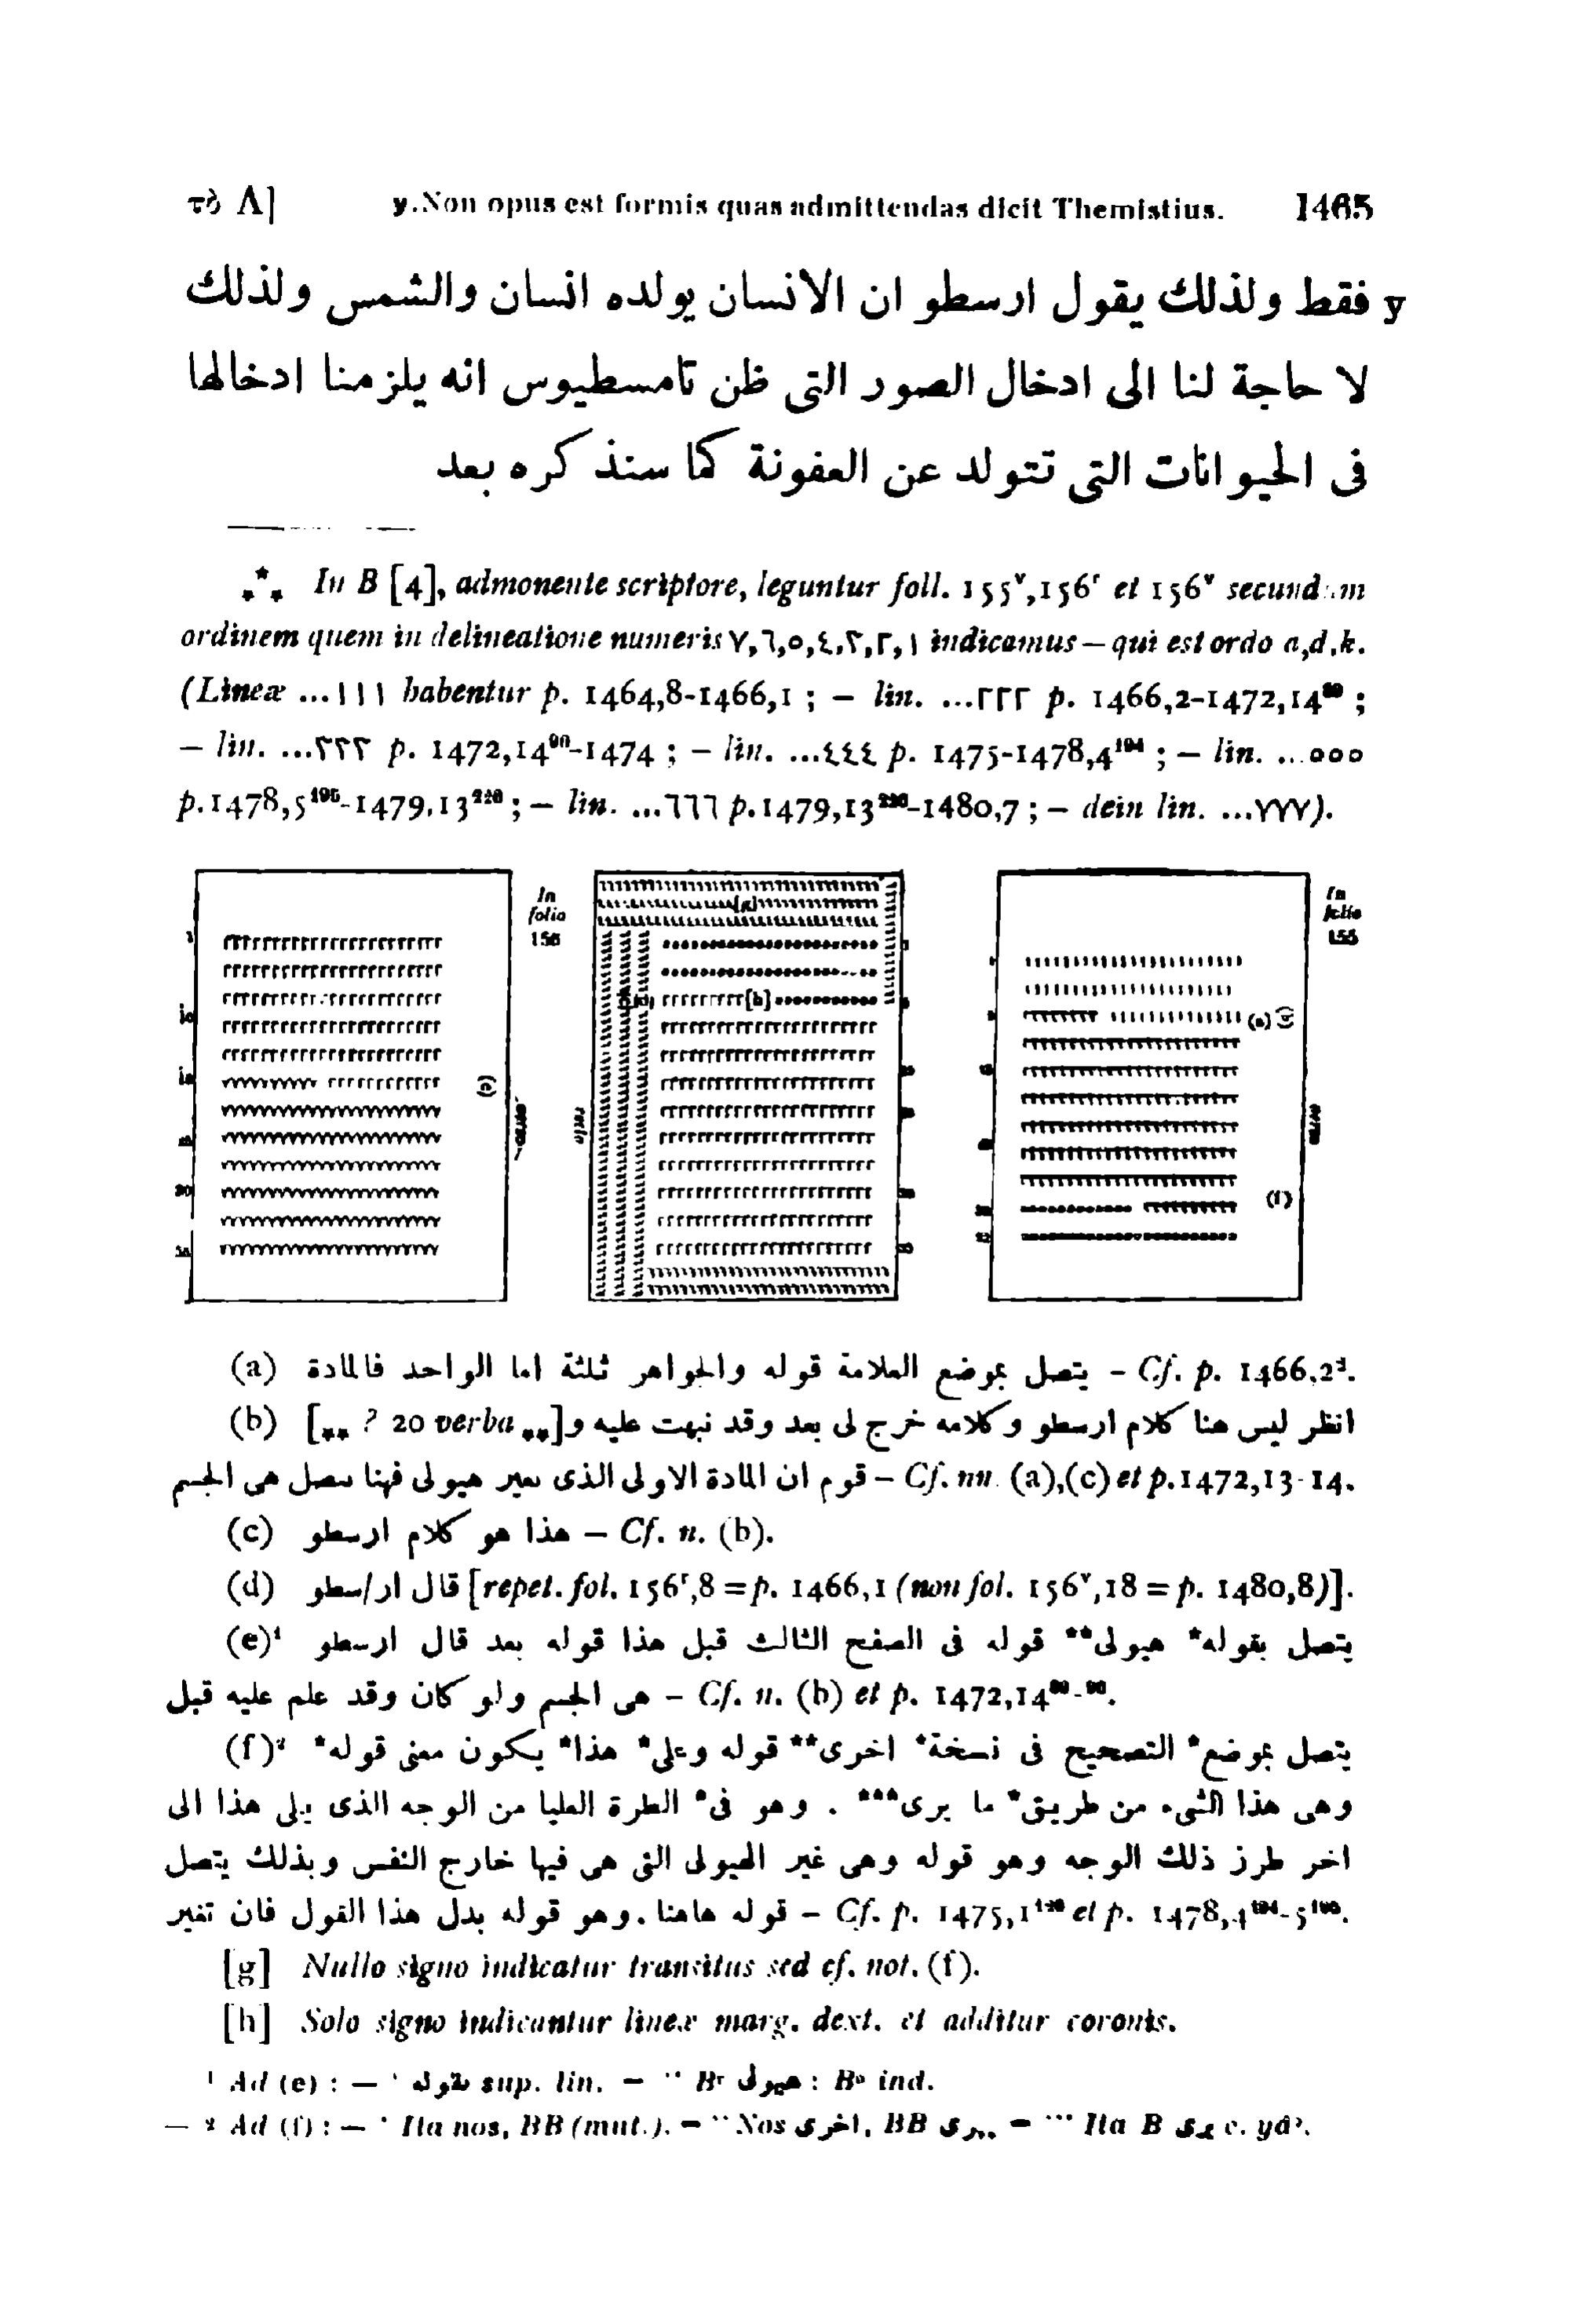 τὸ Λ] y. Non opus est formis quas admittendas dicit Themistius. 1465
y فقط ولذلك يقول ارسطو ان الانسان يولده انسان والشمس ولذلك
لا حاجة لنا الى ادخال الصور التى ظن تامسطيوس انه يلزمنا ادخالها
فى الحيوانات التى تتولد عن العفونة كما سنذكره بعد
⁂ In B [4], admonente scriptore, leguntur foll. 155ᵛ,156ʳ et 156ᵛ secundum
ordinem quem in delineatione numeris ٧,٦,٥,٤,٣,٢,١ indicamus – qui est ordo a,d,k.
(Lineæ ...١١١ habentur p. 1464,8-1466,1 ; – lin. ...٢٢٢ p. 1466,2-1472,14⁸⁹ ;
– lin. ...٣٣٣ p. 1472,14⁹⁰-1474 ; – lin. ...٤٤٤ p. 1475-1478,4¹⁹⁴ ; – lin. ...٥٥٥
p. 1478,5¹⁹⁵-1479,13²²⁸ ; – lin. ...٦٦٦ p. 1479,13-1480,7 ; – dein lin. ...٧٧٧).
In folio 156
In folio 155
verso
recto
verso
(a) يتصل بموضع العلامة قوله والجواهر ثلثة اما الواحد فالمادة – Cf. p. 1466,2³.
(b) انظر ليس هنا كلام ارسطو وكلامه خرج لى بعد وقد نبهت عليه و[⁎⁎ ? 20 verba ⁎⁎]
قوم ان المادة الاولى الذى هيولى فهنا هى الجسم – Cf. nn. (a),(c) et p. 1472,13-14.
(c) هذا هو كلام ارسطو – Cf. n. (b).
(d) قال ار/سطو [repet. fol. 156ʳ,8 = p. 1466,1 (non fol. 156ᵛ,18 = p. 1480,8)].
(e)¹ يتصل بقوله* هيولى** قوله فى الصفح الثالث قبل هذا قوله بعد قال ارسطو
هى الجسم ولو كان وقد علم عليه قبل – Cf. n. (b) et p. 1472,14⁸⁹⁻⁹⁰.
(f)² يتصل بموضع* التصحيح فى نسخة* اخرى** قوله وعلى* هذا* يكون معنى قوله*
وهى هذا الشىء من طريق* ما يرى*** . وهو فى* الطرة العليا من الوجه الذى يلى هذا الى
اخر طرز ذلك الوجه وهو قوله وهى غير الهيولى التى هى فيها خارج النفس وبذلك يتصل
قوله هاهنا. وهو قوله بدل هذا القول فان تغير – Cf. p. 1475,1 et p. 1478,4¹⁹⁴-5¹⁹⁵.
[g] Nullo signo indicatur transitus sed cf. not. (f).
[h] Solo signo indicantur lineæ marg. dext. et additur coronis.
¹ Ad (e) : — * بقوله sup. lin. — ** Bʳ هيولى : Bᵃ ind.
— ² Ad (f) : — * Ita nos, BB (mut.). — ** Nos اخرى, BB — *** Ita B يرى c. yāʾ.